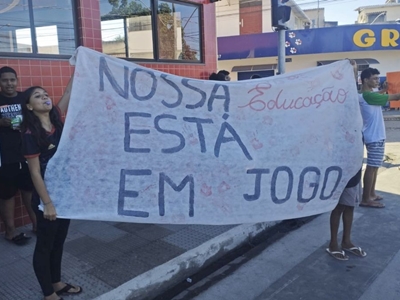 NOSSA Educação
ESTÁ
EM JOGO
GR